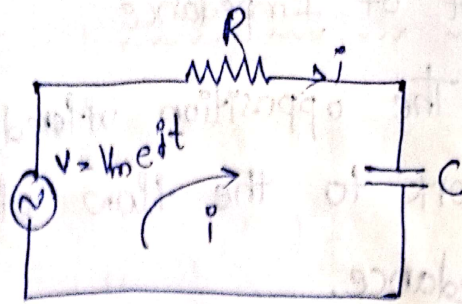 R
i
v = Vm e^jt
C
i